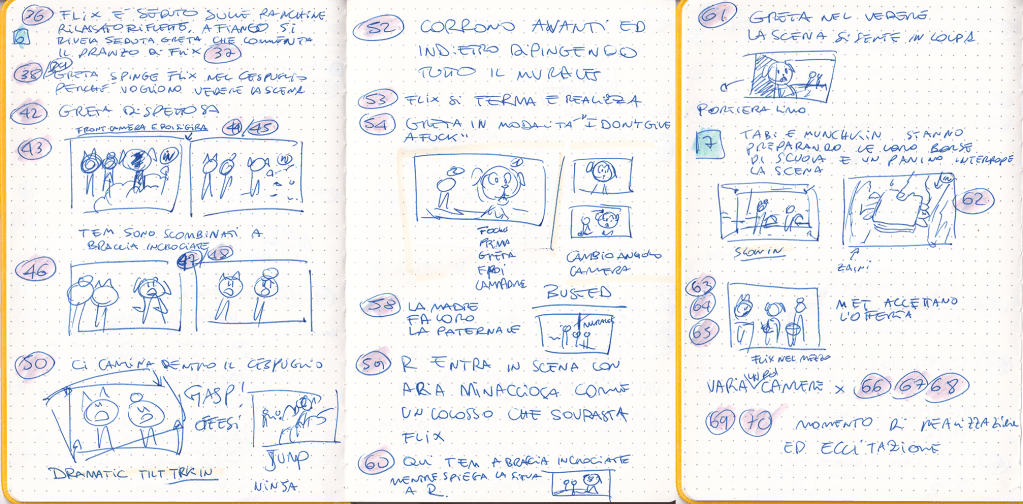 36 FLIX E' SEDUTO SULLE PANCHINE
6 RILASSATO RIFLETTE, A FIANCO SI
RIVELA SEDUTA GRETA CHE COMMENTA
IL PRANZO DI FLIX 37
38 GRETA SPINGE FLIX NEL CESPUGLIO
PERCHE VOGLIONO VEDERE LA SCENA
42 GRETA DISPETTOSA
FRONT CAMERA E POI SI GIRA
43
44/45
TEM SONO SCOMBINATI A
BRACCIA INCROCIATE
46
47/48
50 CI CAMINA DENTRO IL CESPUGLIO
GASP!
DRAMATIC TILT TRK IN
JUMP
NINJA
52 CORRONO AVANTI ED
INDIETRO DIPINGENDO
TUTTO IL MURALES
53 FLIX SI FERMA E REALIZZA
54 GRETA IN MODALITA' "I DONT GIVE
A FUCK"
FOCUS
PRIMA
GRETA
E POI
LAMPADINE
CAMBIO ANGOLO
CAMERA
58 LA MADRE
FA LORO
LA PATERNALE
BUSTED
MURALES
59 R ENTRA IN SCENA CON
ARIA MINACCIOSA COME
UN COLOSSO CHE SOVRASTA
FLIX
60 QUI TEM A BRACCIA INCROCIATE
MENTRE SPIEGA LA SITUA
A R.
61 GRETA NEL VEDERE
LA SCENA SI SENTE IN COLPA
PORTIERA LIMO
7 TABI E MUNCHKIN STANNO
PREPARANDO LE LORO BORSE
DI SCUOLA E UN PANINO INTERROPE
LA SCENA
SLOW IN
ZAINI
62
63
64
65
MET ACCETTANO
L'OFFERTA
FLIX NEL MEZZO
VARIA UN PO' CAMERE X 66 67 68
69 70 MOMENTO DI REALIZZAZIONE
ED ECCITAZIONE